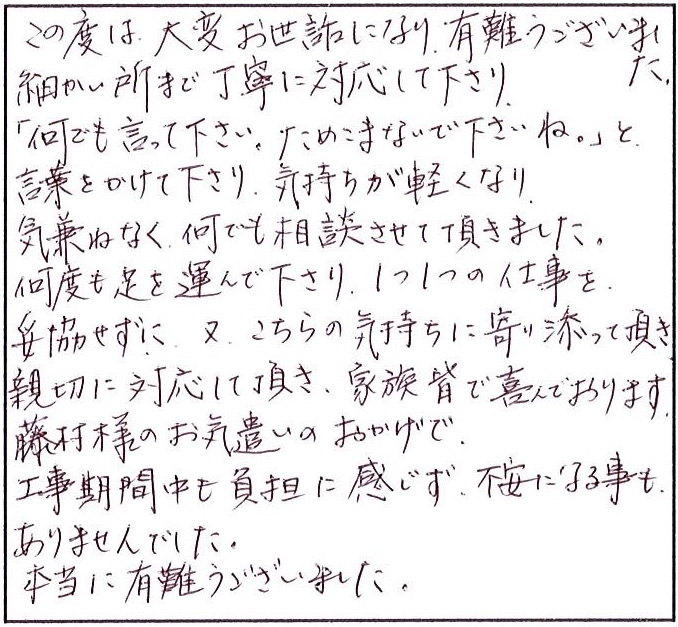 この度は、大変お世話になり、有難うございました。
細かい所まで丁寧に対応して下さり、
「何でも言って下さい。ためこまないで下さいね。」と、
言葉をかけて下さり、気持ちが軽くなり、
気兼ねなく、何でも相談させて頂きました。
何度も足を運んで下さり、1つ1つの仕事を、
妥協せずに、又、こちらの気持ちに寄り添って頂き
親切に対応して頂き、家族皆で喜んでおります。
藤村様のお気遣いのおかげで、
工事期間中も負担に感じず、不安になる事も、
ありませんでした。
本当に有難うございました。